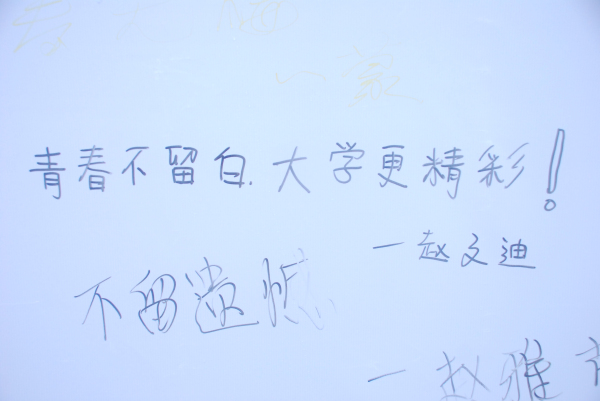 青春不留白.大学更精彩!
一赵文迪
不留遗憾
一赵雅